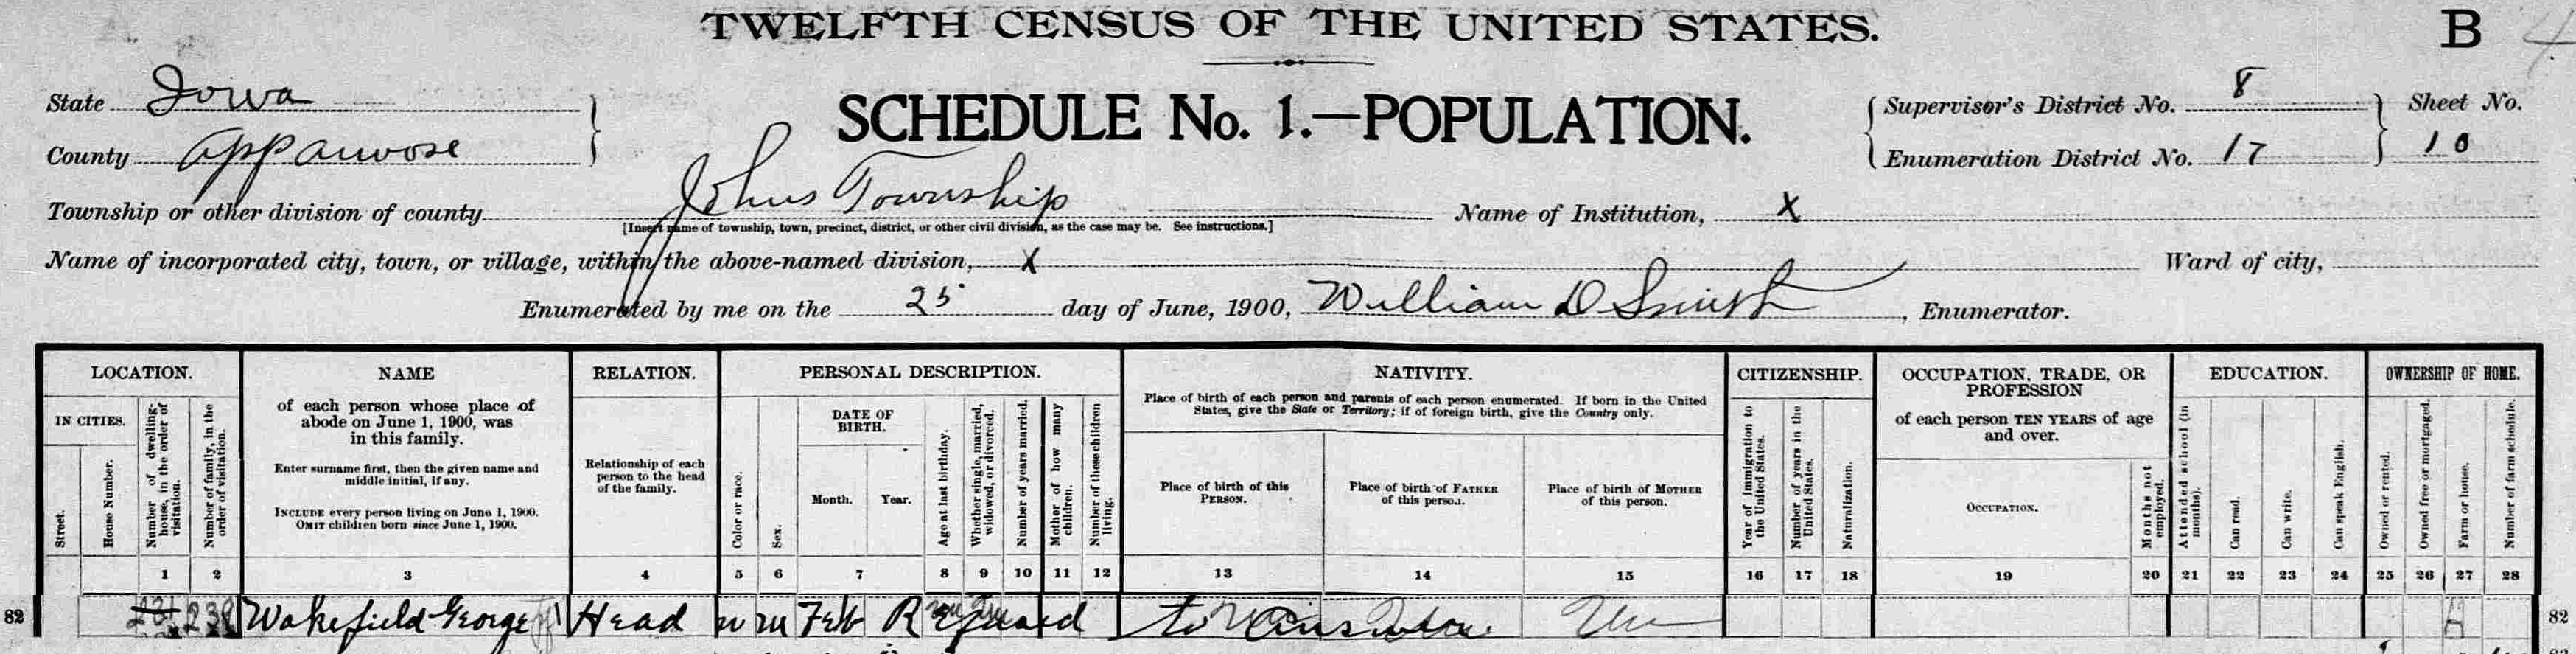 TWELFTH CENSUS OF THE UNITED STATES.
B 4
State Iowa
County Appanoose
SCHEDULE No. 1.—POPULATION.
Supervisor's District No. 8
Enumeration District No. 17
Sheet No.
10
Township or other division of county Johns Township
[Insert name of township, town, precinct, district, or other civil division, as the case may be. See instructions.]
Name of Institution, X
Name of incorporated city, town, or village, within the above-named division, X
Ward of city,
Enumerated by me on the 25 day of June, 1900, William D Smith, Enumerator.
LOCATION.
IN CITIES.
Street.
House Number.
Number of dwelling-house, in the order of visitation.
Number of family, in the order of visitation.
NAME
of each person whose place of
abode on June 1, 1900, was
in this family.
Enter surname first, then the given name and
middle initial, if any.
INCLUDE every person living on June 1, 1900.
OMIT children born since June 1, 1900.
RELATION.
Relationship of each
person to the head
of the family.
PERSONAL DESCRIPTION.
Color or race.
Sex.
DATE OF
BIRTH.
Month. Year.
Age at last birthday.
Whether single, married, widowed, or divorced.
Number of years married.
Mother of how many children.
Number of these children living.
NATIVITY.
Place of birth of each person and parents of each person enumerated. If born in the United
States, give the State or Territory; if of foreign birth, give the Country only.
Place of birth of this
PERSON.
Place of birth of FATHER
of this person.
Place of birth of MOTHER
of this person.
CITIZENSHIP.
Year of immigration to the United States.
Number of years in the United States.
Naturalization.
OCCUPATION, TRADE, OR
PROFESSION
of each person TEN YEARS of age
and over.
OCCUPATION.
Months not employed.
EDUCATION.
Attended school (in months).
Can read.
Can write.
Can speak English.
OWNERSHIP OF HOME.
Owned or rented.
Owned free or mortgaged.
Farm or house.
Number of farm schedule.
1 2 3 4 5 6 7 8 9 10 11 12 13 14 15 16 17 18 19 20 21 22 23 24 25 26 27 28
82 231 238 Wakefield George Head w m Feb Refused to Answer Un H 82